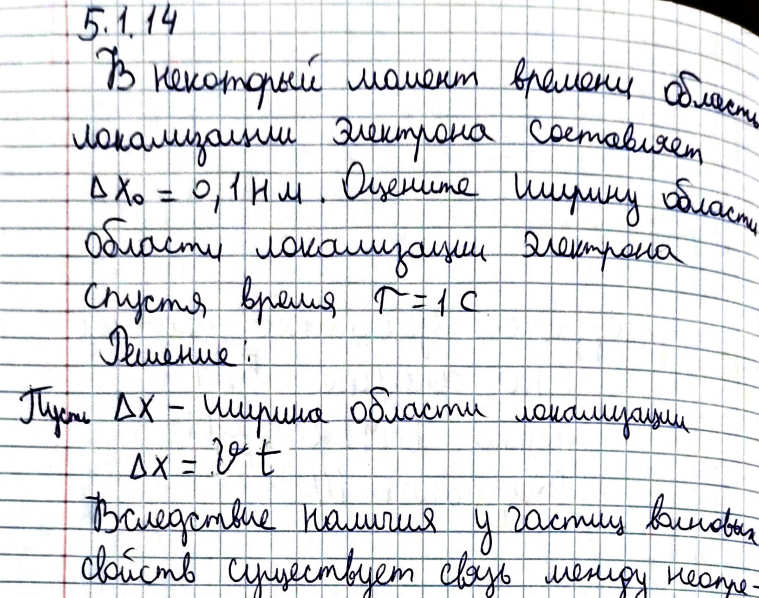 5.1.14
В некоторый момент времени область
локализации электрона составляет
Δx₀ = 0,1 нм. Оцените ширину области
области локализации электрона
спустя время τ = 1 с
Решение:
Пусть Δx – ширина области локализации
Δx = ϑ t
Вследствие наличия у частиц волновых
свойств существует связь между неопре-